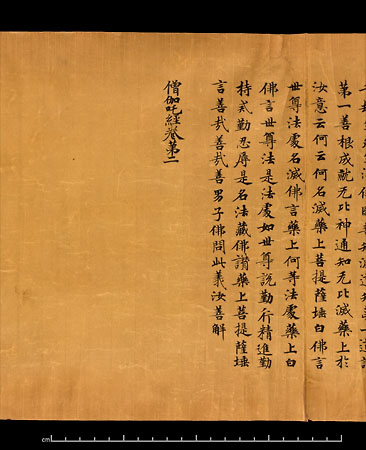 第一善根成就无比神通知无比滅藥上於
汝意云何云何名滅藥上菩提薩埵白佛言
世尊法處名滅佛言藥上何等法處藥上白
佛言世尊法是法處如世尊說勤行精進勤
持戒勤忍辱是名法藏佛讚藥上菩提薩埵
言善哉善哉善男子佛問此義汝善解
僧伽吒經卷第二
cm